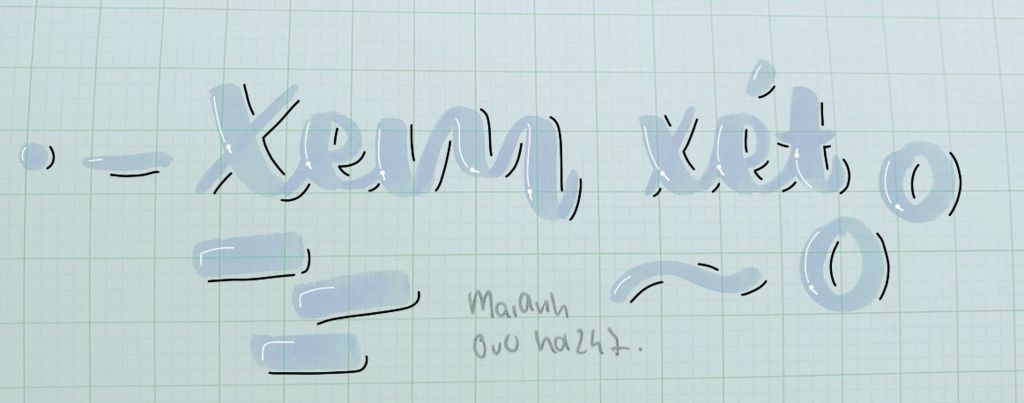 Xem xét
Maianh
OvO ha247.